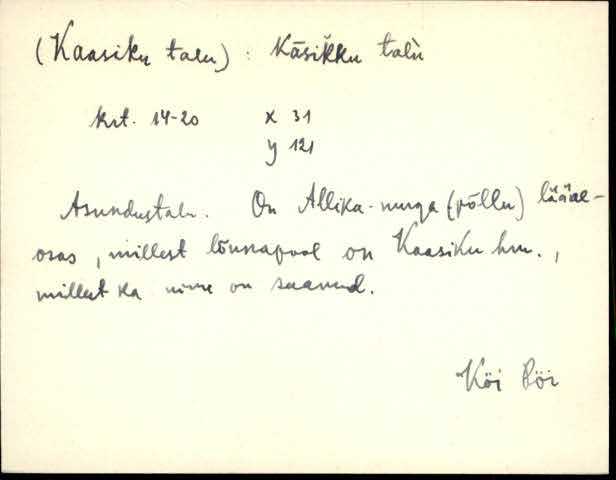 (Kaasiku talu) : Kāsikku talù
krt. 14-20 x 31
y 121
Asundustalu. On Allika-nurga (põllu) lääne-
osas, millest lõunapool on Kaasiku hm.,
millest ka nime on saanud.
Köi Pöi